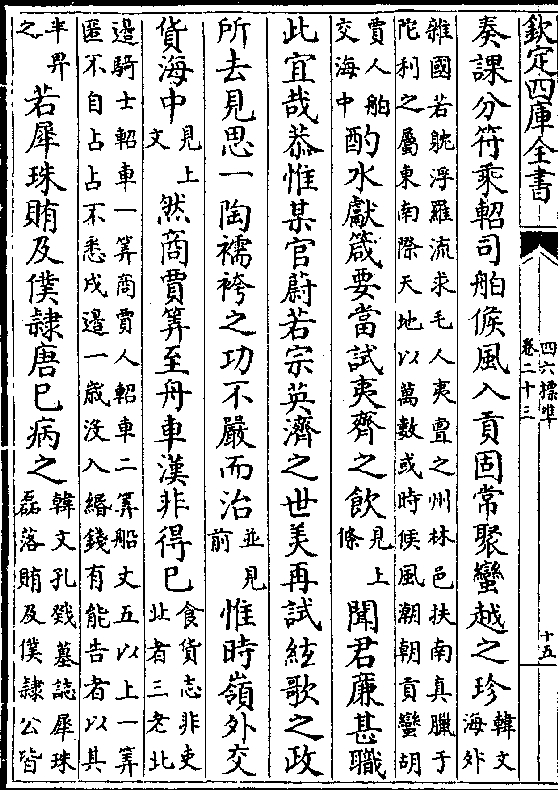 欽定四庫全書
四六標準
卷二十三
十五
奏課分符乘軺司舶候風入貢固常聚蠻越之珍韓文海外
雜國若躭浮羅流求毛人夷亶之州林邑扶南真臘于
陀利之屬東南際天地以萬數或時候風潮朝貢蠻胡
賈人舶交海中酌水獻箴要當試夷齊之飲見上條聞君廉甚職
此宜哉恭惟某官蔚若宗英濟之世美再試絃歌之政
所去見思一陶襦袴之功不嚴而治並見前惟時嶺外交
貨海中見上文然商賈筭至舟車漢非得已食貨志非吏比者三老北
邉騎士軺車一筭商賈人軺車二筭船丈五以上一筭
匿不自占占不悉戍邉一歲沒入緡錢有能告者以其
半畀之若犀珠賄及僕隷唐已病之韓文孔戣墓誌犀珠磊落賄及僕隷公皆